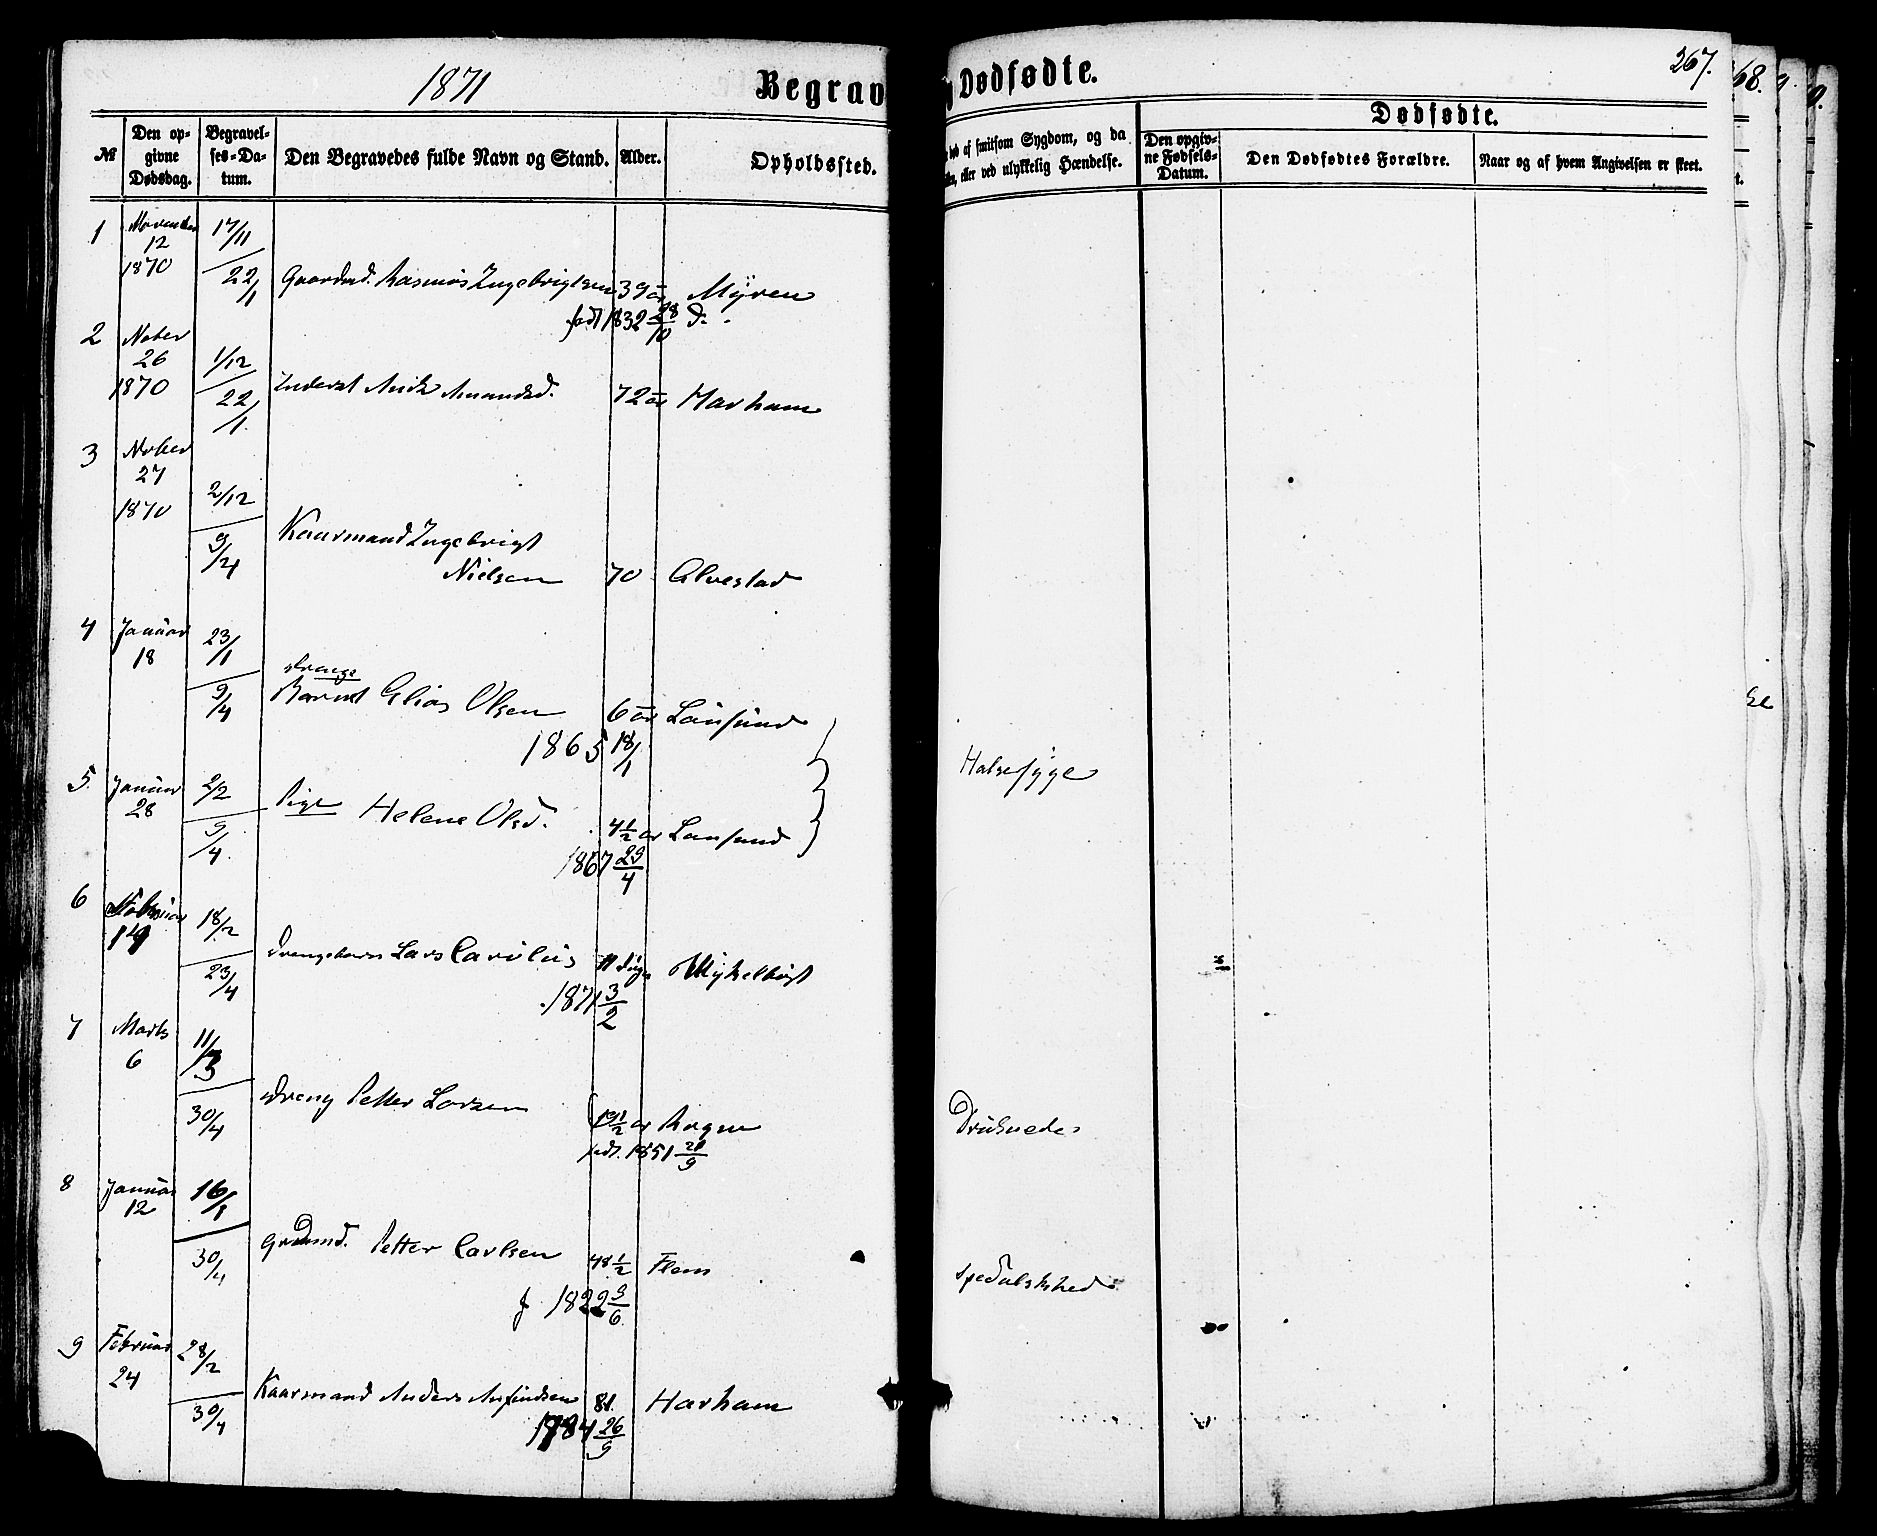 1871 Begrav
g Dødfødte. 267.
№ Den opgivne Dødsdag. Begravelses-Datum. Den Begravedes fulde Navn og Stand. Alder. Opholdssted.
død af smitsom Sygdom, og da
eller ved ulykkelig Hændelse.
Dødfødte.
Den opgivne Fødsels-Datum. Den Dødfødtes Forældre. Naar og af hvem Angivelsen er skeet.
1 November 12 1870 17/11 22/1 Gaardmd. Rasmus Ingebrigtsen 39 år Myren
født 1832 28/10 d.
2 Nober 26 1870 1/12 22/1 Inderst Amundsd. 72 år Harham
3 Nober 27 1870 2/12 9/4 Kaarmand Ingebrigt
Nielsen 70 Alvestad
4 Januar 18 23/1 9/4 drenge
Barnet Elias Olsen 6 år Lausund
1865 18/1
5. Januar 28 2/2 9/4 Pige Helene Olsd. 4½ år Lausund
Halsesyge
1867 29/4
6 Februar 14 18/2 23/4 Drengebarn Lars Carolus 11 dage Mykelbost
1871 3/2
7 Marts 6 11/3 30/4 dreng Petter Larsen 19½ år Rogne
Druknede
født. 1851 21/9
8 Januar 12 16/1 30/4 Grdmd. Petter Carlsen 48½ Flem
Spedalskhed
f 1822 9/6
9 Februar 24 28/2 30/4 Kaarmand Anders Arfindsen 81. Harham
1784 26/9
68.